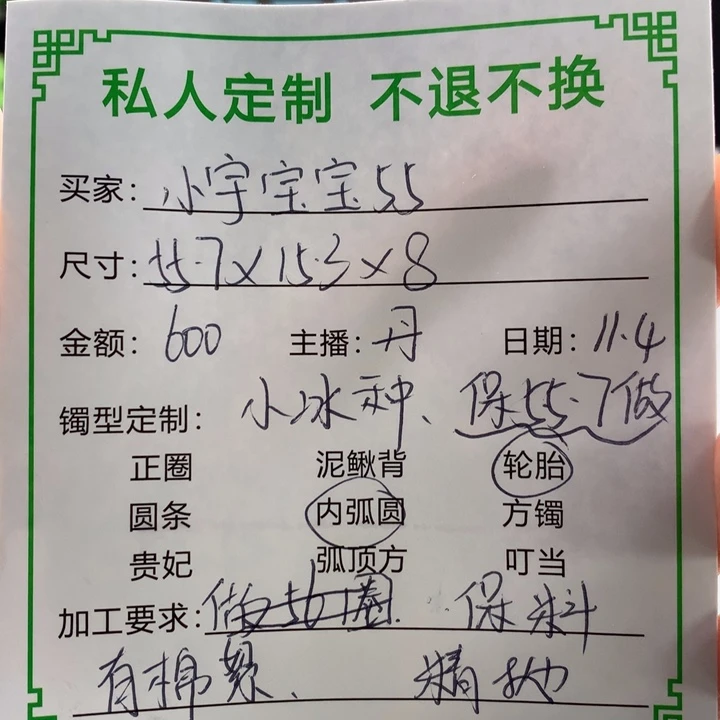 私人定制 不退不换
买家: 小宇宝宝55
尺寸: 55.7×15.3×8
金额: 600 主播: 丹 日期: 11.4
镯型定制: 小冰种、保55.7做
正圈 泥鳅背 轮胎
圆条 内弧圆 方镯
贵妃 弧顶方 叮当
加工要求: 做56圈. 保料
有棉絮、 精抛